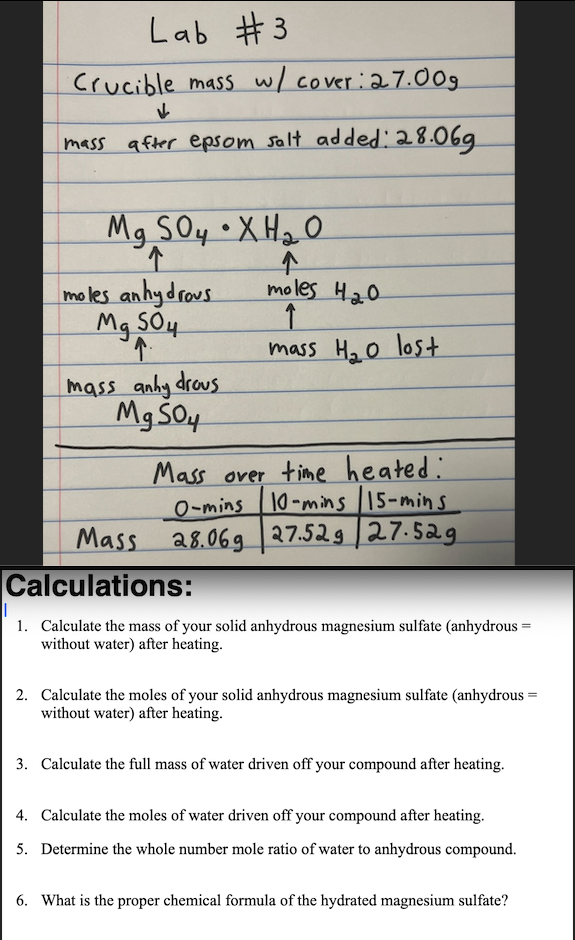 Lab #3
Crucible mass w/ cover: 27.00g
↓
mass after epsom salt added: 28.06g
MgSO₄ • XH₂O
↑ ↑
moles anhydrous moles H₂O
MgSO₄ ↑
↑ mass H₂O lost
mass anhydrous
MgSO₄
Mass over time heated:
0-mins 10-mins 15-mins
Mass 28.06g 27.52g 27.52g
Calculations:
1. Calculate the mass of your solid anhydrous magnesium sulfate (anhydrous =
without water) after heating.
2. Calculate the moles of your solid anhydrous magnesium sulfate (anhydrous =
without water) after heating.
3. Calculate the full mass of water driven off your compound after heating.
4. Calculate the moles of water driven off your compound after heating.
5. Determine the whole number mole ratio of water to anhydrous compound.
6. What is the proper chemical formula of the hydrated magnesium sulfate?